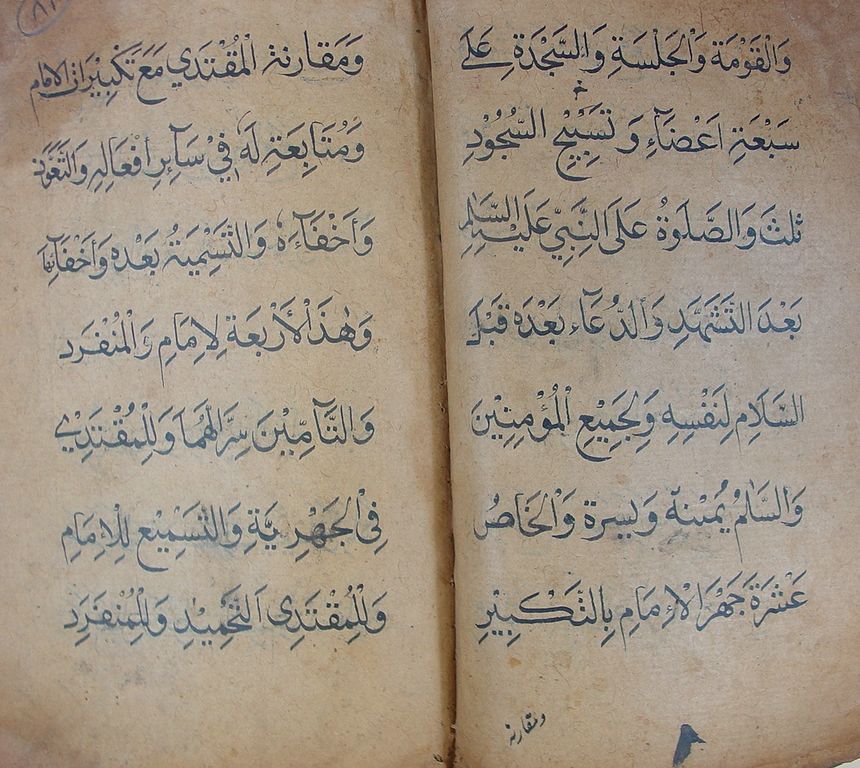 وَالْقَوْمَة وَالْجَلْسَةِ وَالسَّجْدَةِ عَلَى
سَبْعَةِ اَعْضَآءِ وَ تَسْبِيْحِ السُّجُوْدِ
ثلثَ وَالصَّلَوةُ عَلَى النَّبِيِّ عَلَيْهِ السَّلَامِ
بَعْدَ التَّشَهُّدِ وَالدُّعَآءِ بَعْدَه قَبْلَ
السَّلَامِ لِنَفْسِهِ وَلِجَمِيْعِ الْمُؤْمِنِيْنَ
وَالسَّلَامُ يُمْنَةً وَ يسرة وَالْخَاصُ
عَشْرَةَ جَهْرَ الْاِمَامِ بِالتَّكْبِيْرِ
ومقارنه
٨٢
وَمَقَارنة الْمُقْتَدِي مَعَ تَكْبِيْرَات الامام
وَمُتَابِعَةِ لَهُ فِيْ سَآئِرِ أفْعَالِهِ وَالتَّعَوُّذ
وَأَخْفَآءَهُ وَالتَّسْمِيَةُ بَعْدَه وَأَخْفَائها
وَهٰذَ الْأَرْبَعَة لِاِمَامِ وَالْمُنْفَرِد
وَالتَّآمِّيْنَ سِرًّا لَهُمَا وَلِلْمُقْتَدِيْ
فِي الْجَهْرِيَّةِ وَالتَّسْمِيْعِ لِلْاِمَامِ
وَلِلْمُقْتَدِى اَلتَّحْمِيْدِ وَلِلْمُنْفَرِدِ